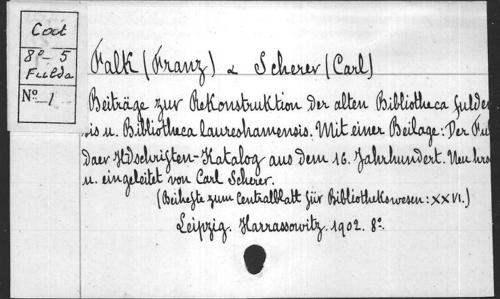 Cod
8º-5
Fulda
Nº 1
Falk (Franz) & Scherer (Carl)
Beiträge zur Rekonstruktion der alten Bibliotheca fulden
sis u. Bibliotheca laureshamensis. Mit einer Beilage: Der Ful
daer Hdschriften-Katalog aus dem 16. Jahrhundert. Neu hrsg
u. eingeleitet von Carl Scherer.
(Beihefte zum Centralblatt für Bibliothekswesen: XXVI.)
Leipzig. Harrassowitz. 1902. 8º.